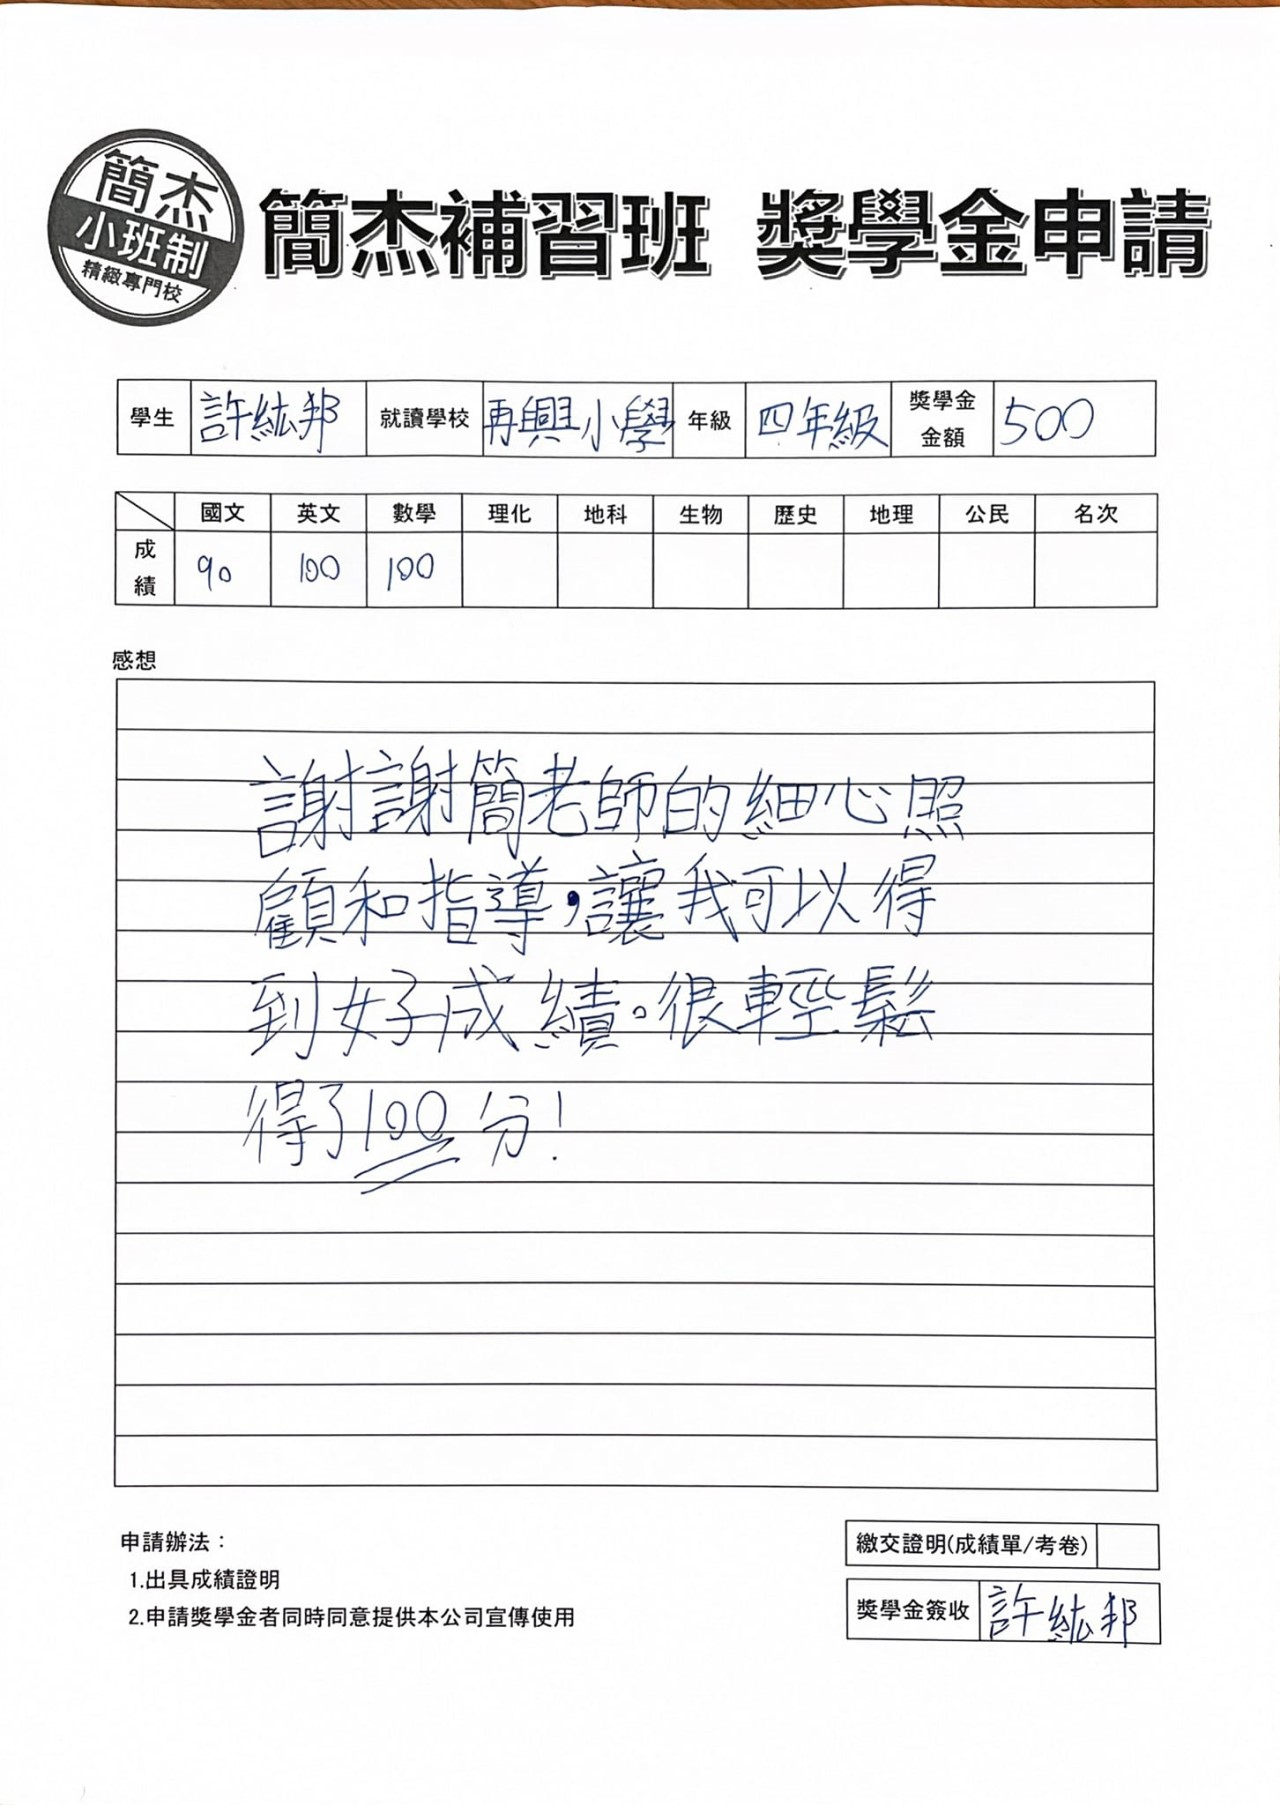 簡杰
小班制
精緻專門校
簡杰補習班 獎學金申請
學生 許紘邦 就讀學校 再興小學 年級 四年級 獎學金金額 500
國文 英文 數學 理化 地科 生物 歷史 地理 公民 名次
成績 90 100 100
感想
謝謝簡老師的細心照
顧和指導，讓我可以得
到好成績。很輕鬆
得了100分！
申請辦法：
1.出具成績證明
2.申請獎學金者同時同意提供本公司宣傳使用
繳交證明(成績單/考卷)
獎學金簽收 許紘邦